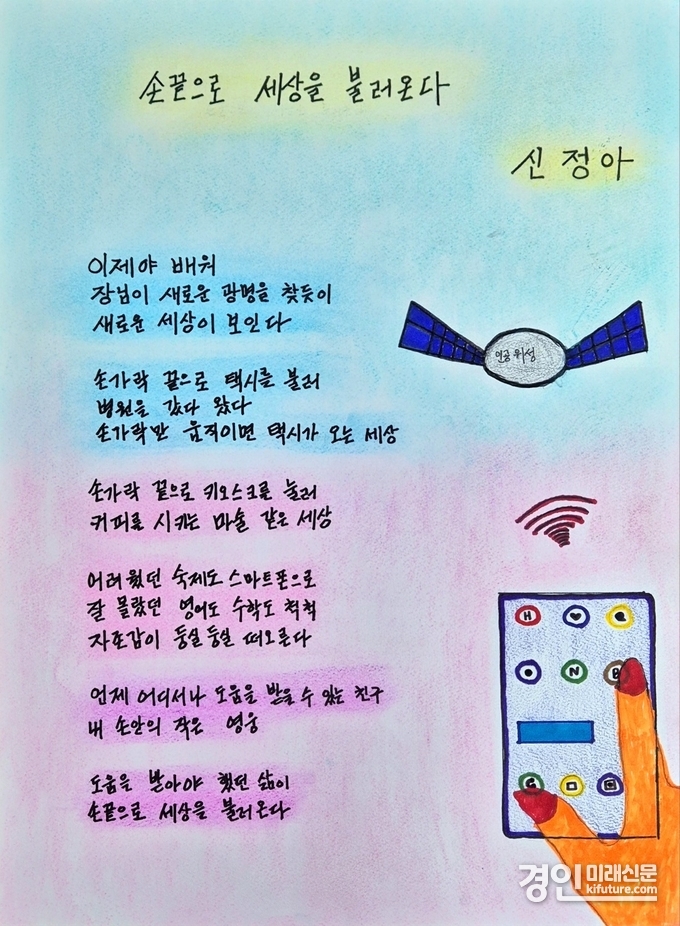 손끝으로 세상을 불러온다
신정아
이제야 배워
장님이 새로운 광명을 찾듯이
새로운 세상이 보인다
손가락 끝으로 택시를 불러
병원을 갔다 왔다
손가락만 움직이면 택시가 오는 세상
손가락 끝으로 키오스크를 눌러
커피를 시키는 마술 같은 세상
어려웠던 숙제도 스마트폰으로
잘 몰랐던 영어도 수학도 척척
자존감이 둥실둥실 떠오른다
언제 어디서나 도움을 받을 수 있는 친구
내 손안의 작은 영웅
도움을 받아야 했던 삶이
손끝으로 세상을 불러온다
인공위성
H
N
B
경인미래신문
kifuture.com